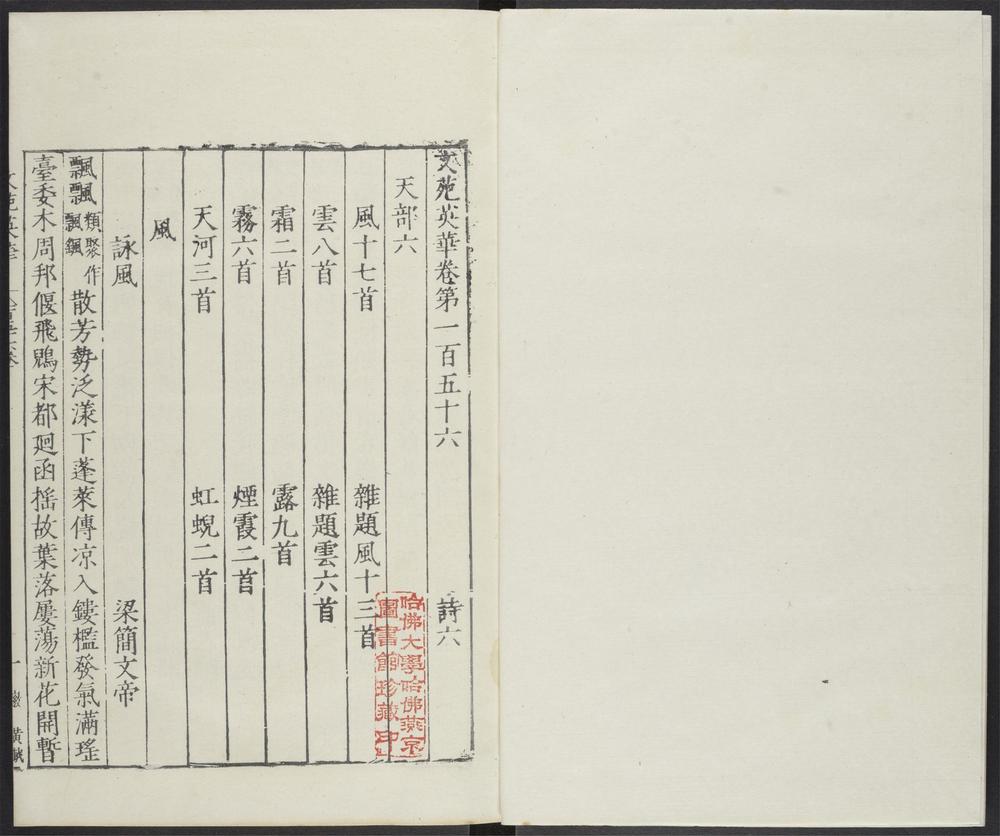 文苑英華卷第一百五十六　詩六
天部六
風十七首　雜題風十三首
雲八首　雜題雲六首
霜二首　露九首
霧六首　煙霞二首
天河三首　虹蜺二首
風
詠風　梁簡文帝
飄飄類聚作飄颻散芳勢泛漾下蓬萊傳凉入鏤檻發氣滿瑤
臺委木周邦偃飛鶂宋都廻函揺故葉落屢蕩新花開暫
哈佛大學哈佛燕京
圖書館珍藏印